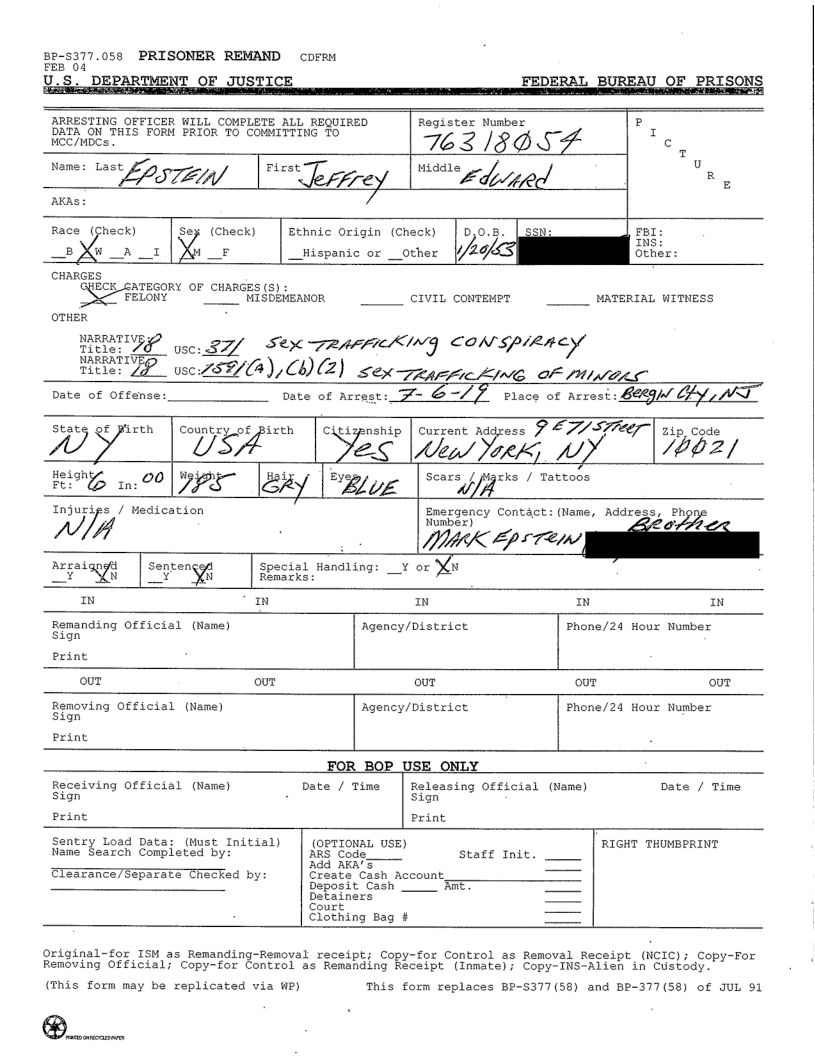 BP-S377.058 PRISONER REMAND CDFRM
FEB 04
U.S. DEPARTMENT OF JUSTICE FEDERAL BUREAU OF PRISONS
ARRESTING OFFICER WILL COMPLETE ALL REQUIRED
DATA ON THIS FORM PRIOR TO COMMITTING TO
MCC/MDCs.
Register Number
76318054
PICTURE
Name: Last EPSTEIN First Jeffrey Middle EdWARd
AKAs:
Race (Check) Sex (Check) Ethnic Origin (Check) D.O.B. SSN: FBI:
INS:
__B XW __A __I XM __F __Hispanic or __Other 1/20/53 Other:
CHARGES
CHECK CATEGORY OF CHARGES(S):
X FELONY _____ MISDEMEANOR _____ CIVIL CONTEMPT _____ MATERIAL WITNESS
OTHER
NARRATIVE
Title: 18 USC: 371 SEX TRAFFICKING CONSPIRACY
NARRATIVE
Title: 18 USC: 1591(A),(b)(2) SEX TRAFFICKING OF MINORS
Date of Offense:____________ Date of Arrest: 7-6-19 Place of Arrest: BERGIN Cty, NJ
State of Birth Country of Birth Citizenship Current Address 9 E 71 STreeT Zip Code
NY USA Yes New York, NY 10021
Height Weight Hair Eyes Scars / Marks / Tattoos
Ft: 6 In: 00 185 GRY BLUE N/A
Injuries / Medication Emergency Contact:(Name, Address, Phone
Number) BROTHER
N/A MARK EPSTEIN
Arraigned Sentenced Special Handling: __Y or XN
__Y XN __Y XN Remarks:
IN IN IN IN IN
Remanding Official (Name) Agency/District Phone/24 Hour Number
Sign
Print
OUT OUT OUT OUT OUT
Removing Official (Name) Agency/District Phone/24 Hour Number
Sign
Print
FOR BOP USE ONLY
Receiving Official (Name) Date / Time Releasing Official (Name) Date / Time
Sign Sign
Print Print
Sentry Load Data: (Must Initial) (OPTIONAL USE) RIGHT THUMBPRINT
Name Search Completed by: ARS Code_____ Staff Init. _____
Add AKA's
Clearance/Separate Checked by: Create Cash Account
Deposit Cash _____ Amt.
Detainers
Court
Clothing Bag #
Original-for ISM as Remanding-Removal receipt; Copy-for Control as Removal Receipt (NCIC); Copy-For
Removing Official; Copy-for Control as Remanding Receipt (Inmate); Copy-INS-Alien in Custody.
(This form may be replicated via WP) This form replaces BP-S377(58) and BP-377(58) of JUL 91
PRINTED ON RECYCLED PAPER